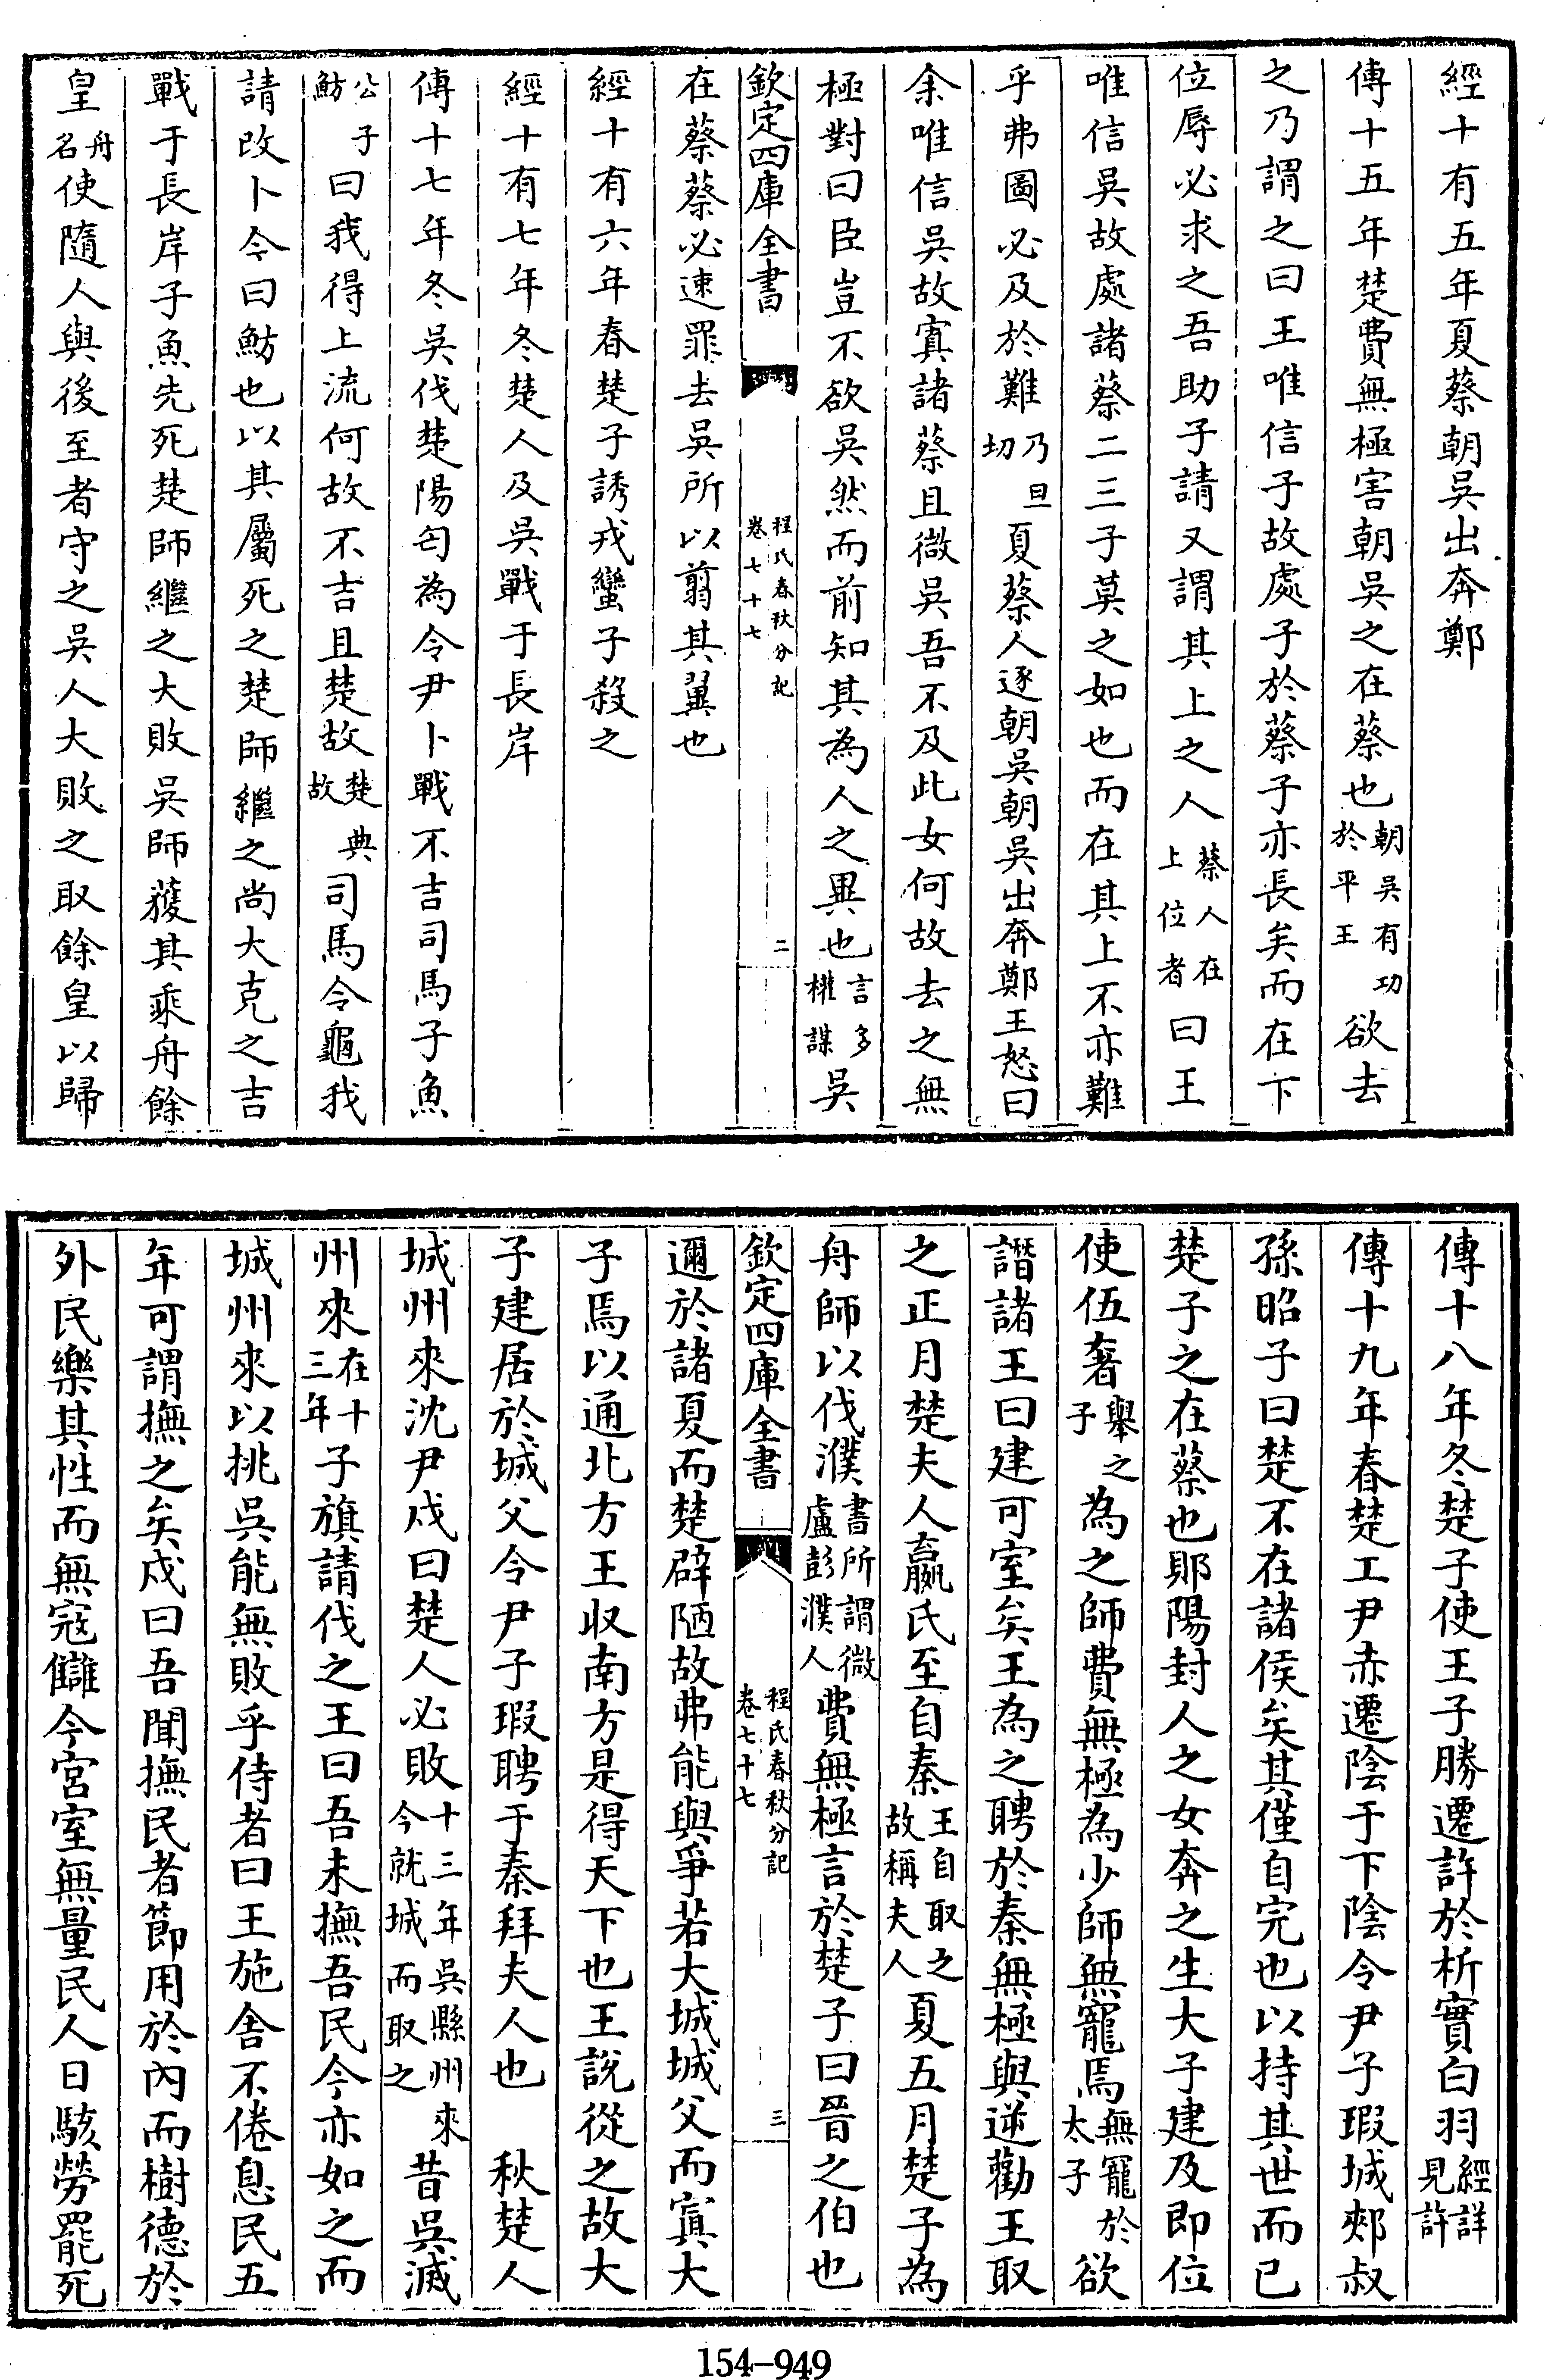 經十有五年夏蔡朝吳出奔鄭
傳十五年楚費無極害朝吳之在蔡也朝吳有功於平王欲去
之乃謂之曰王唯信子故處子於蔡子亦長矣而在下
位辱必求之吾助子請又謂其上之人蔡人在上位者曰王
唯信吳故處諸蔡二三子莫之如也而在其上不亦難
乎弗圖必及於難乃旦切夏蔡人逐朝吳朝吳出奔鄭王怒曰
余唯信吳故寘諸蔡且微吳吾不及此女何故去之無
極對曰臣豈不欲吳然而前知其為人之異也言多權謀吳
欽定四庫全書
程氏春秋分記
卷七十七
二
在蔡蔡必速罪去吳所以翦其翼也
經十有六年春楚子誘戎蠻子殺之
經十有七年冬楚人及吳戰于長岸
傳十七年冬吳伐楚陽匄為令尹卜戰不吉司馬子魚
公子魴曰我得上流何故不吉且楚故楚典故司馬令龜我
請改卜令曰魴也以其屬死之楚師繼之尚大克之吉
戰于長岸子魚先死楚師繼之大敗吳師獲其乘舟餘
皇舟名使隨人與後至者守之吳人大敗之取餘皇以歸
傳十八年冬楚子使王子勝遷許於析實白羽經詳見許
傳十九年春楚工尹赤遷陰于下陰令尹子瑕城郟叔
孫昭子曰楚不在諸侯矣其僅自完也以持其世而已
楚子之在蔡也郹陽封人之女奔之生大子建及即位
使伍奢舉之子為之師費無極為少師無寵焉無寵於太子欲
譖諸王曰建可室矣王為之聘於秦無極與逆勸王取
之正月楚夫人嬴氏至自秦王自取之故稱夫人夏五月楚子為
舟師以伐濮書所謂微盧彭濮人費無極言於楚子曰晉之伯也
欽定四庫全書
程氏春秋分記
卷七十七
三
邇於諸夏而楚辟陋故弗能與爭若大城城父而寘大
子焉以通北方王收南方是得天下也王說從之故大
子建居於城父令尹子瑕聘于秦拜夫人也 秋楚人
城州來沈尹戍曰楚人必敗十三年吳縣州來今就城而取之昔吳滅
州來在十三年子旗請伐之王曰吾未撫吾民今亦如之而
城州來以挑吳能無敗乎侍者曰王施舍不倦息民五
年可謂撫之矣戍曰吾聞撫民者節用於內而樹德於
外民樂其性而無寇讎今宮室無量民人日駭勞罷死
154-949